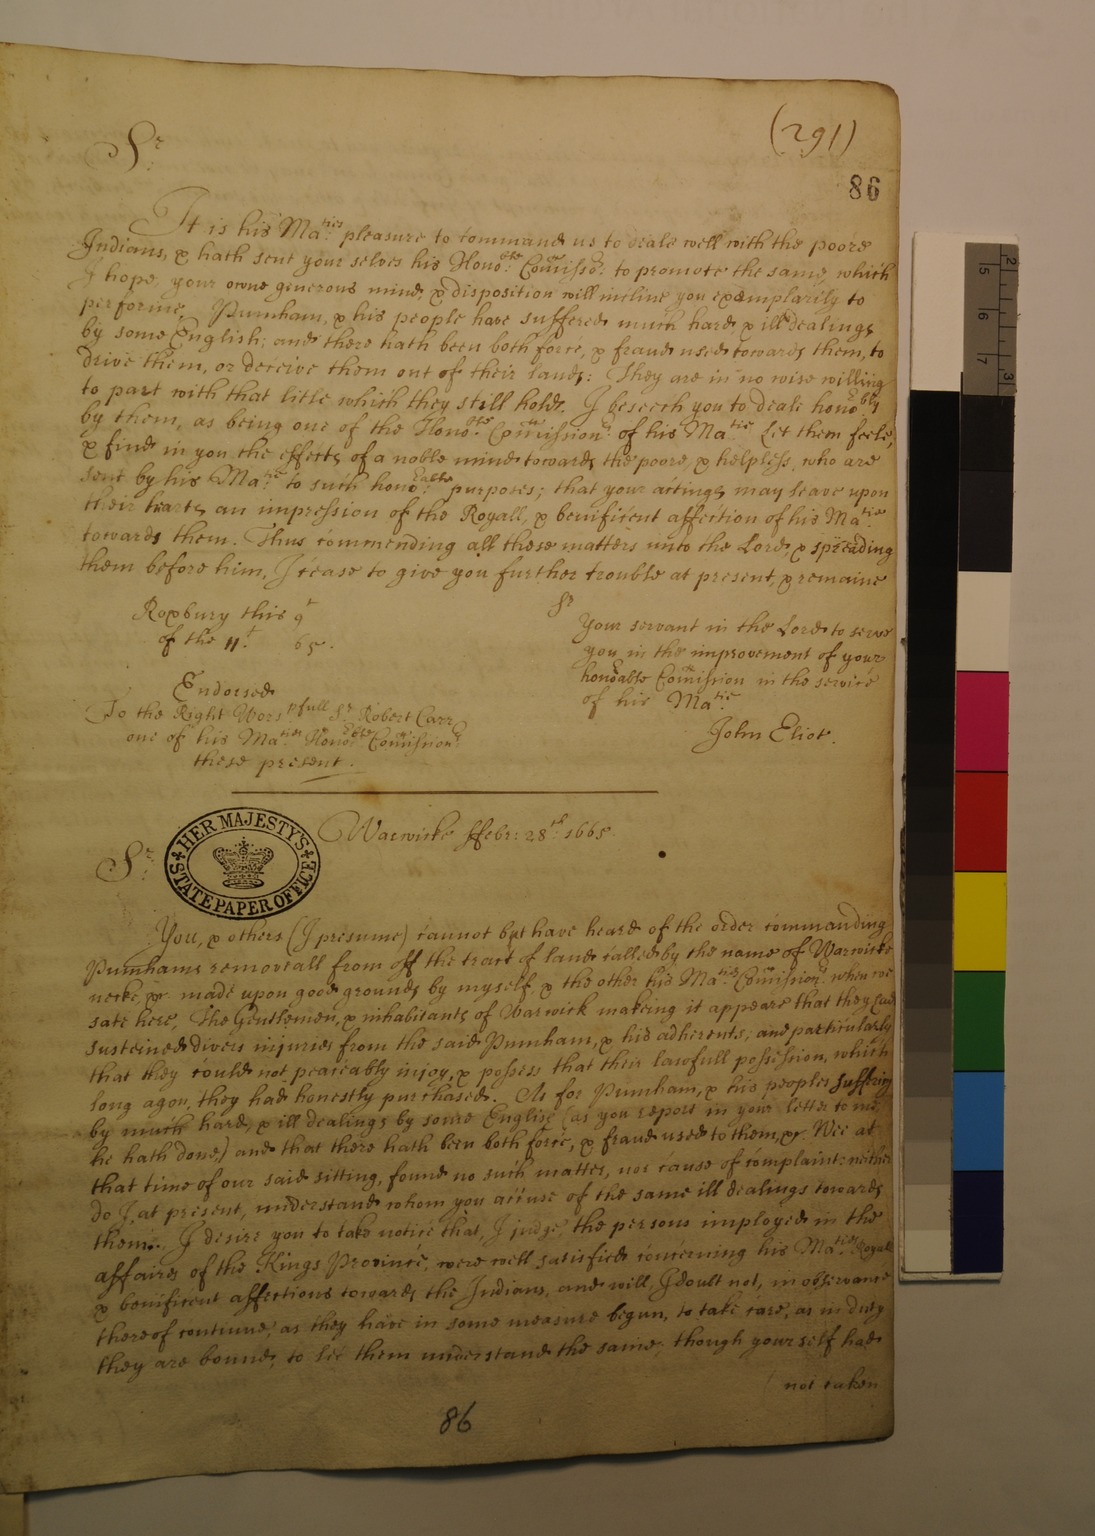 (291)
86
Sr.
It is his Ma:ties pleasure to command us to deale well with the poore
Indians, & hath sent your selves his Hono:ble Comisso:rs to promote the same, which
I hope, your owne generous mind, & disposition will incline you exemplarily to
performe. Pumham, & his people have suffered much hard, & ill dealings
by some English; and there hath been both force, & fraud used towards them, to
drive them, or deceive them out of their lands: They are in no wise willing
to part with that litle which they still hold. I beseech you to deale honobly
by them, as being one of the Hono:ble Comission:rs of his Ma:tie Let them feele,
& find in you the effects of a noble mind towards the poore, & helpless, who are
sent by his Ma:tie to such hono:able purposes; that your actings may leave upon
their hearts an impression of the Royall, & benificent affection of his Ma:tie
towards them. Thus commending all these matters unto the Lord, & spreading
them before him, I cease to give you further trouble at present, & remaine
Roxbury this 9t
of the 11t. 65.
Sr
Your servant in the Lord to serve
you in the improvement of your
honoable Comission in the service
of his Ma:tie
John Eliot.
Endorsed
To the Right Worspfull Sr Robert Carr
one of his Ma:ties Hono:ble Comission:rs
these present.
HER MAJESTY'S STATE PAPER OFFICE
Warwicke ffebr: 28th: 1665
Sr.
You, & others (I presume) cannot but have heard of the order commanding
Pumhams removeall from off the tract of land called by the name of Warwicke
necke, &c. made upon good grounds by myself, & the other his Ma:ties Comission:rs when we
sate here, The Gentlemen, & inhabitants of Warwick making it appeare that they had
susteined divers injuries from the said Pumham, & his adherents; and particularly
that they could not peaceably injoy, & possess that their lawfull possession, which
long agon, they had honestly purchased. As for Pumham, & his peoples suffering
by much hard, & ill dealings by some English (as you report in your letter to me,
he hath done,) and that there hath been both force, & fraud used to them, &c. Wee at
that time of our said sitting, found no such matter, nor cause of complaint: neither
do I, at present, understand whom you accuse of the same ill dealings towards
them. I desire you to take notice that, I judge, the persons imployed in the
affaires of the Kings Province, were well satisfied concerning his Ma:ties Royall
& benificent affections towards the Indians, and will, I doubt not, in observance
thereof continue, as they have in some measure begun, to take care, as in duty
they are bound, to let them understand the same, though yourself had
not taken
86